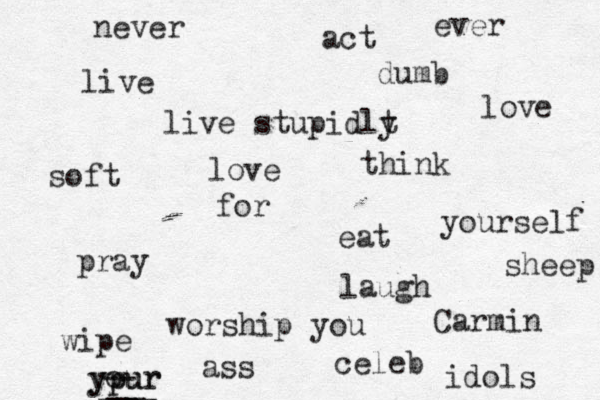 never act ever
live dumb
live stupidly love
soft love think
for yourself
pray eat sheep
laugh
worship you Carmin
wipe ass celeb idols
your